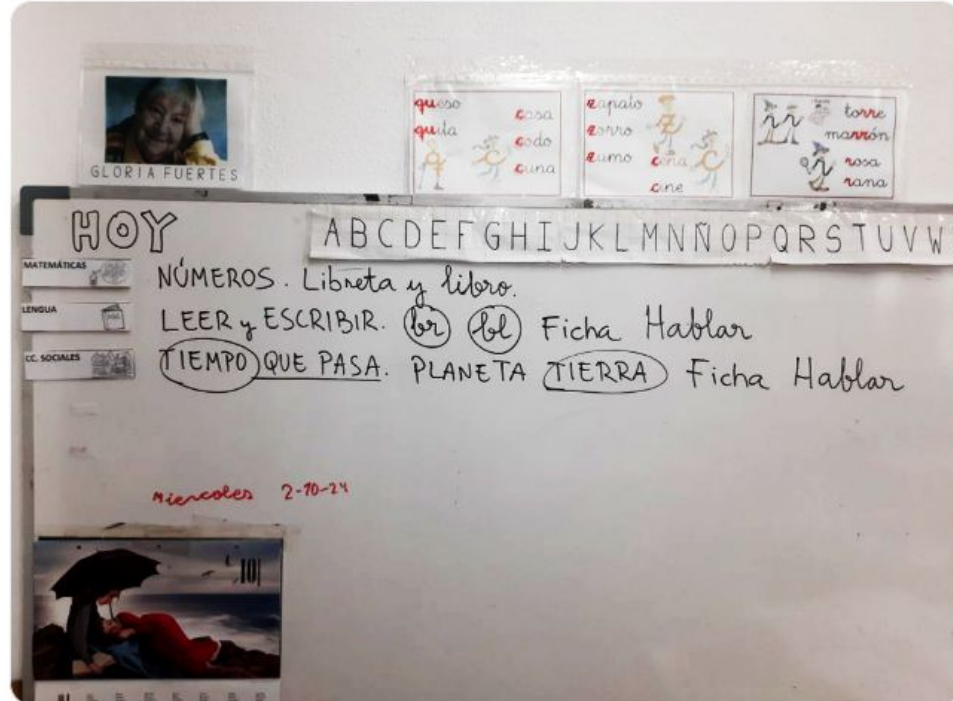 GLORIA FUERTES
queso
quita
casa
codo
cuna
zapato
zorro
zumo
cena
cine
torre
marrón
rosa
rana
HOY
A B C D E F G H I J K L M N Ñ O P Q R S T U V W
MATEMÁTICAS
NÚMEROS. Libreta y libro.
LENGUA
LEER y ESCRIBIR. br bl Ficha Hablar
CC. SOCIALES
TIEMPO QUE PASA. PLANETA TIERRA Ficha Hablar
Miercoles 2-10-24
10